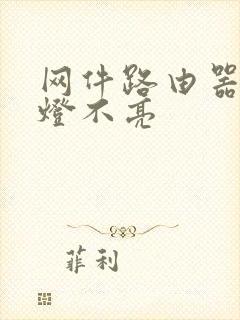 网件路由器
燈不亮
菲利